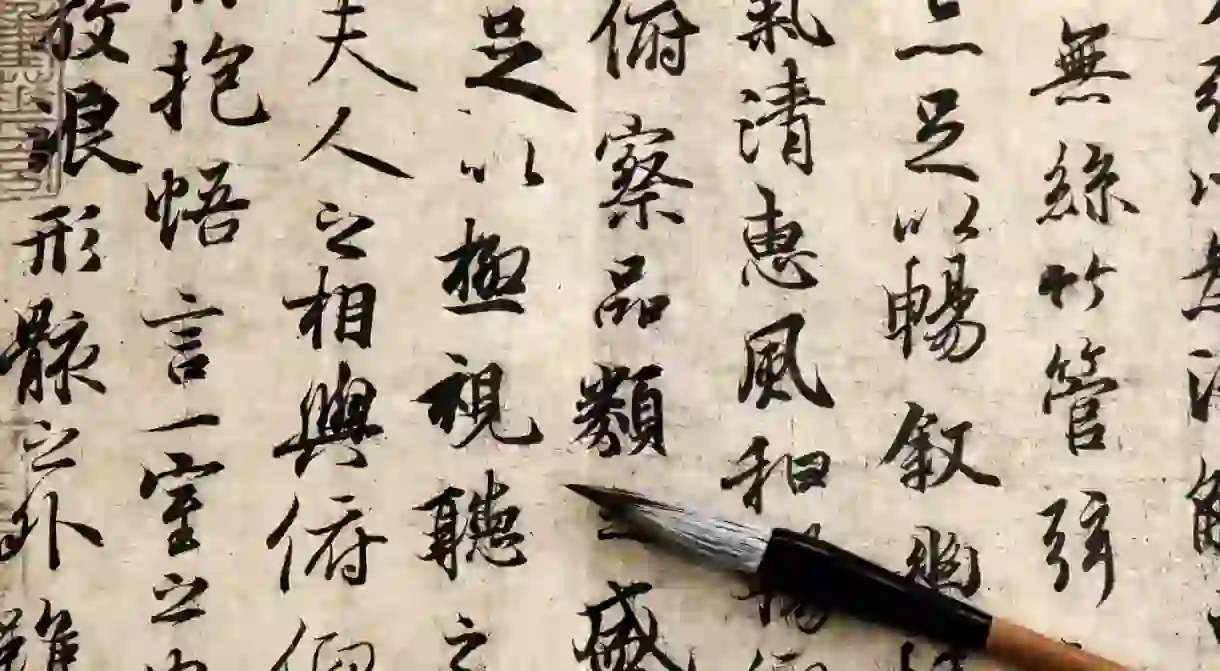 無絲竹管弦
亦足以暢叙幽
氣清惠風和暢仰
俯察品類之盛
足以極視聽之
夫人之相與俯仰
抱悟言一室之
放浪形骸之外雖